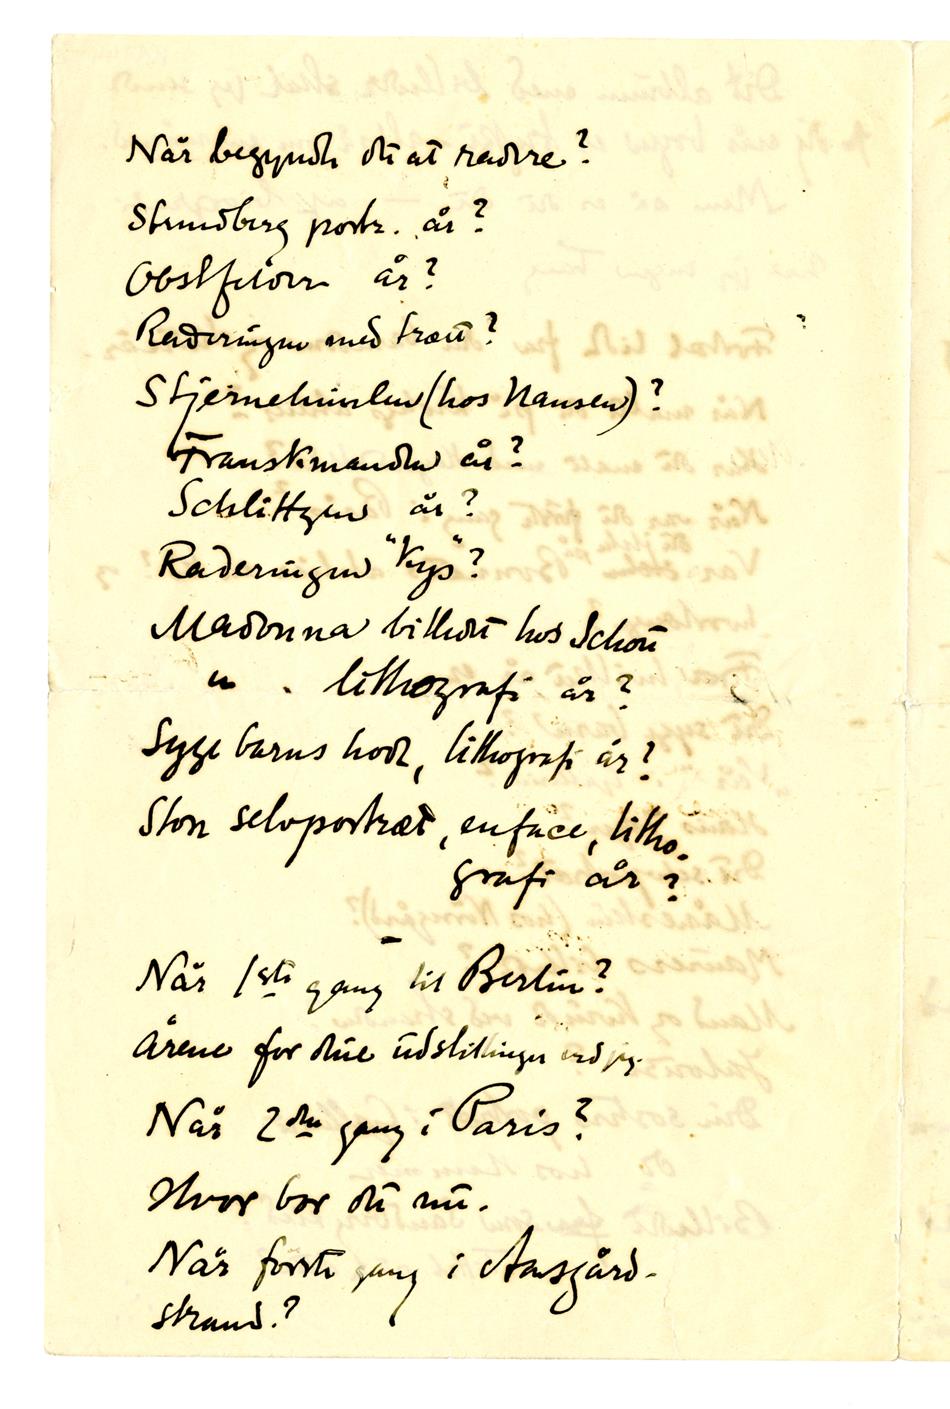 Når begyndte du at radere?
Strindberg portr. år?
Obstfelder år?
Raderingen med træet?
Stjernehimlen (hos Nansen)?
Franskmanden år?
Schlittgen år?
Raderingen "Kys"?
Madonna billedet hos Schou
" . lithografi år?
Syge barns hode, lithografi år?
Store selvportræt, enface, litho-
grafi år?
Når 1ste gang til Berlin?
Årene for dine üdstillinger ved jeg.
Når 2den gang i Paris?
Hvor bor du nu.
Når første gang i Aasgård-
strand?